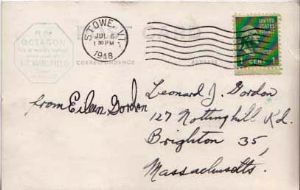 OCTAGON
STOWE, VT.
JUL 6
1 30 PM
1948
UNITED STATES
1 CENT
CORRESPONDENCE
from Eileen Gordon
Leonard J. Gordon
127 Nottinghill Rd.
Brighton 35,
Massachusetts.